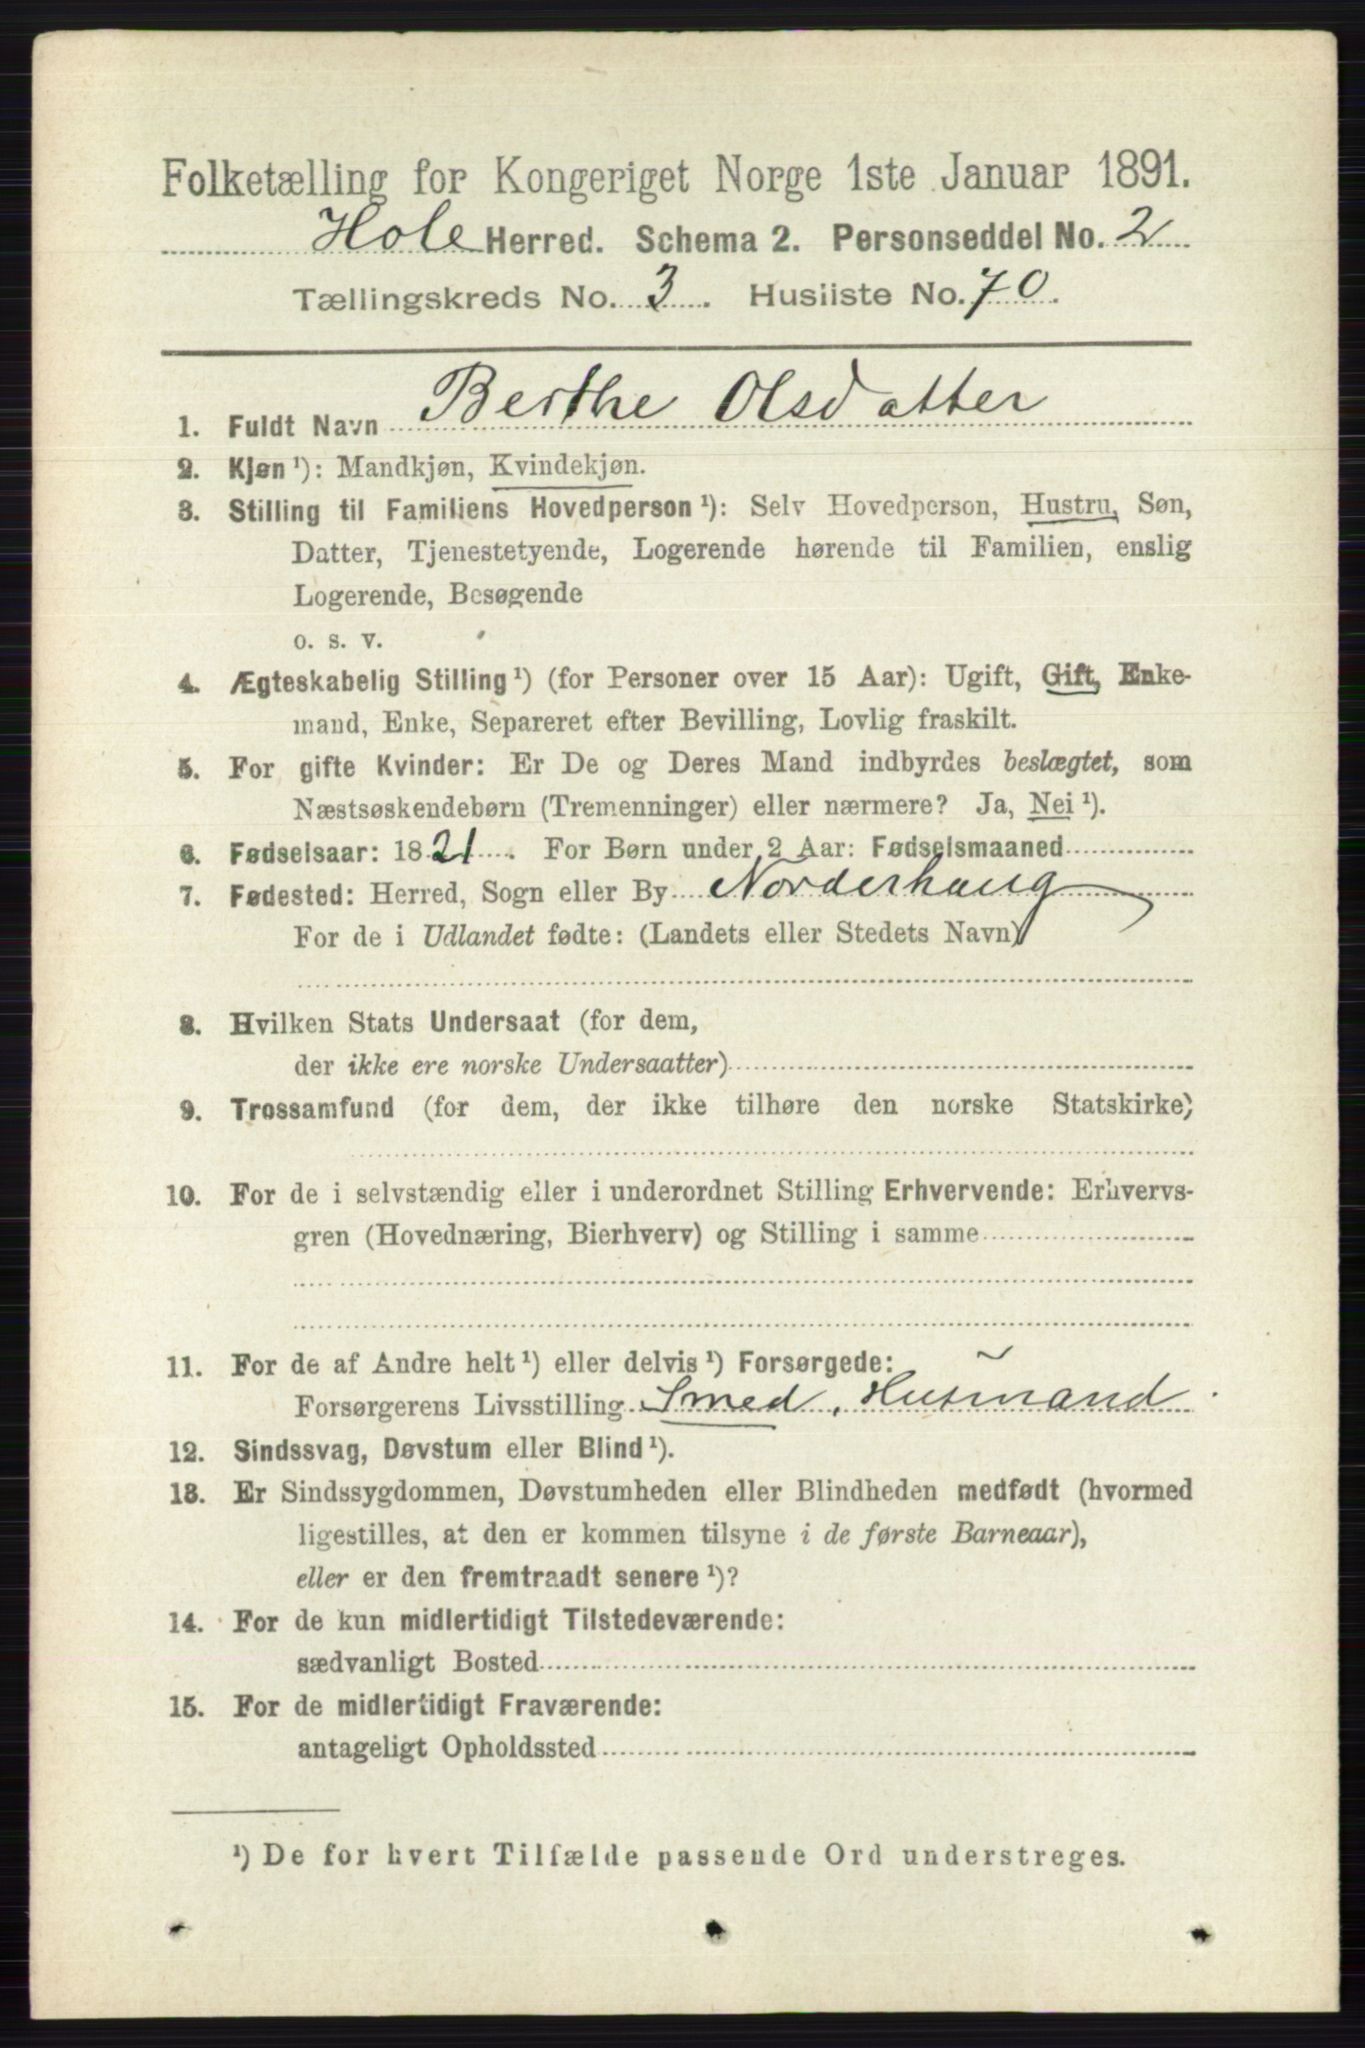 Folketælling for Kongeriget Norge 1ste Januar 1891.
Hole Herred. Schema 2. Personseddel No. 2
Tællingskreds No. 3. Husliste No. 70.
1. Fuldt Navn Berthe Olsdatter
2. Kjøn ¹): Mandkjøn, Kvindekjøn.
3. Stilling til Familiens Hovedperson ¹): Selv Hovedperson, Hustru, Søn,
Datter, Tjenestetyende, Logerende hørende til Familien, enslig
Logerende, Besøgende
o. s. v.
4. Ægteskabelig Stilling ¹) (for Personer over 15 Aar): Ugift, Gift, Enke-
mand, Enke, Separeret efter Bevilling, Lovlig fraskilt.
5. For gifte Kvinder: Er De og Deres Mand indbyrdes beslægtet, som
Næstsøskendebørn (Tremenninger) eller nærmere? Ja, Nei ¹).
6. Fødselsaar: 1821. For Børn under 2 Aar: Fødselsmaaned
7. Fødested: Herred, Sogn eller By Norderhaug
For de i Udlandet fødte: (Landets eller Stedets Navn)
8. Hvilken Stats Undersaat (for dem,
der ikke ere norske Undersaatter)
9. Trossamfund (for dem, der ikke tilhøre den norske Statskirke)
10. For de i selvstændig eller i underordnet Stilling Erhvervende: Erhvervs-
gren (Hovednæring, Bierhverv) og Stilling i samme
11. For de af Andre helt ¹) eller delvis ¹) Forsørgede:
Forsørgerens Livsstilling Smed, Husmand
12. Sindssvag, Døvstum eller Blind ¹).
13. Er Sindssygdommen, Døvstumheden eller Blindheden medfødt (hvormed
ligestilles, at den er kommen tilsyne i de første Barneaar),
eller er den fremtraadt senere ¹)?
14. For de kun midlertidigt Tilstedeværende:
sædvanligt Bosted
15. For de midlertidigt Fraværende:
antageligt Opholdssted
¹) De for hvert Tilfælde passende Ord understreges.